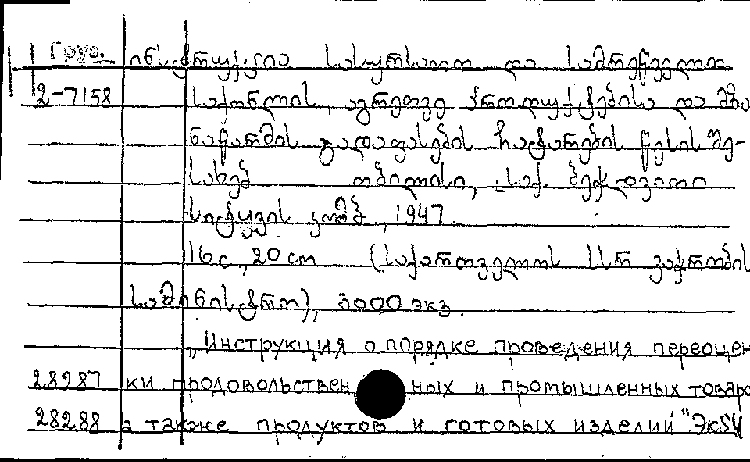 Груз. ინსტრუქცია სასურსათო და სამრეწველო
2-7158 საქონლის, აგრეთვე პროდუქტებისა და მზა
ნაწარმის გადაფასების ჩატარების წესის შე-
სახებ თბილისი, საქ. ბეჭდვითი
სიტყვის კომბ., 1947.
16 с., 20 cm (საქართველოს სსრ ვაჭრობის
სამინისტრო), 3000 экз.
„Инструкция о порядке проведения переоцен
28287 ки продовольствен ных и промышленных товаро
28288 а также продуктов и готовых изделий"